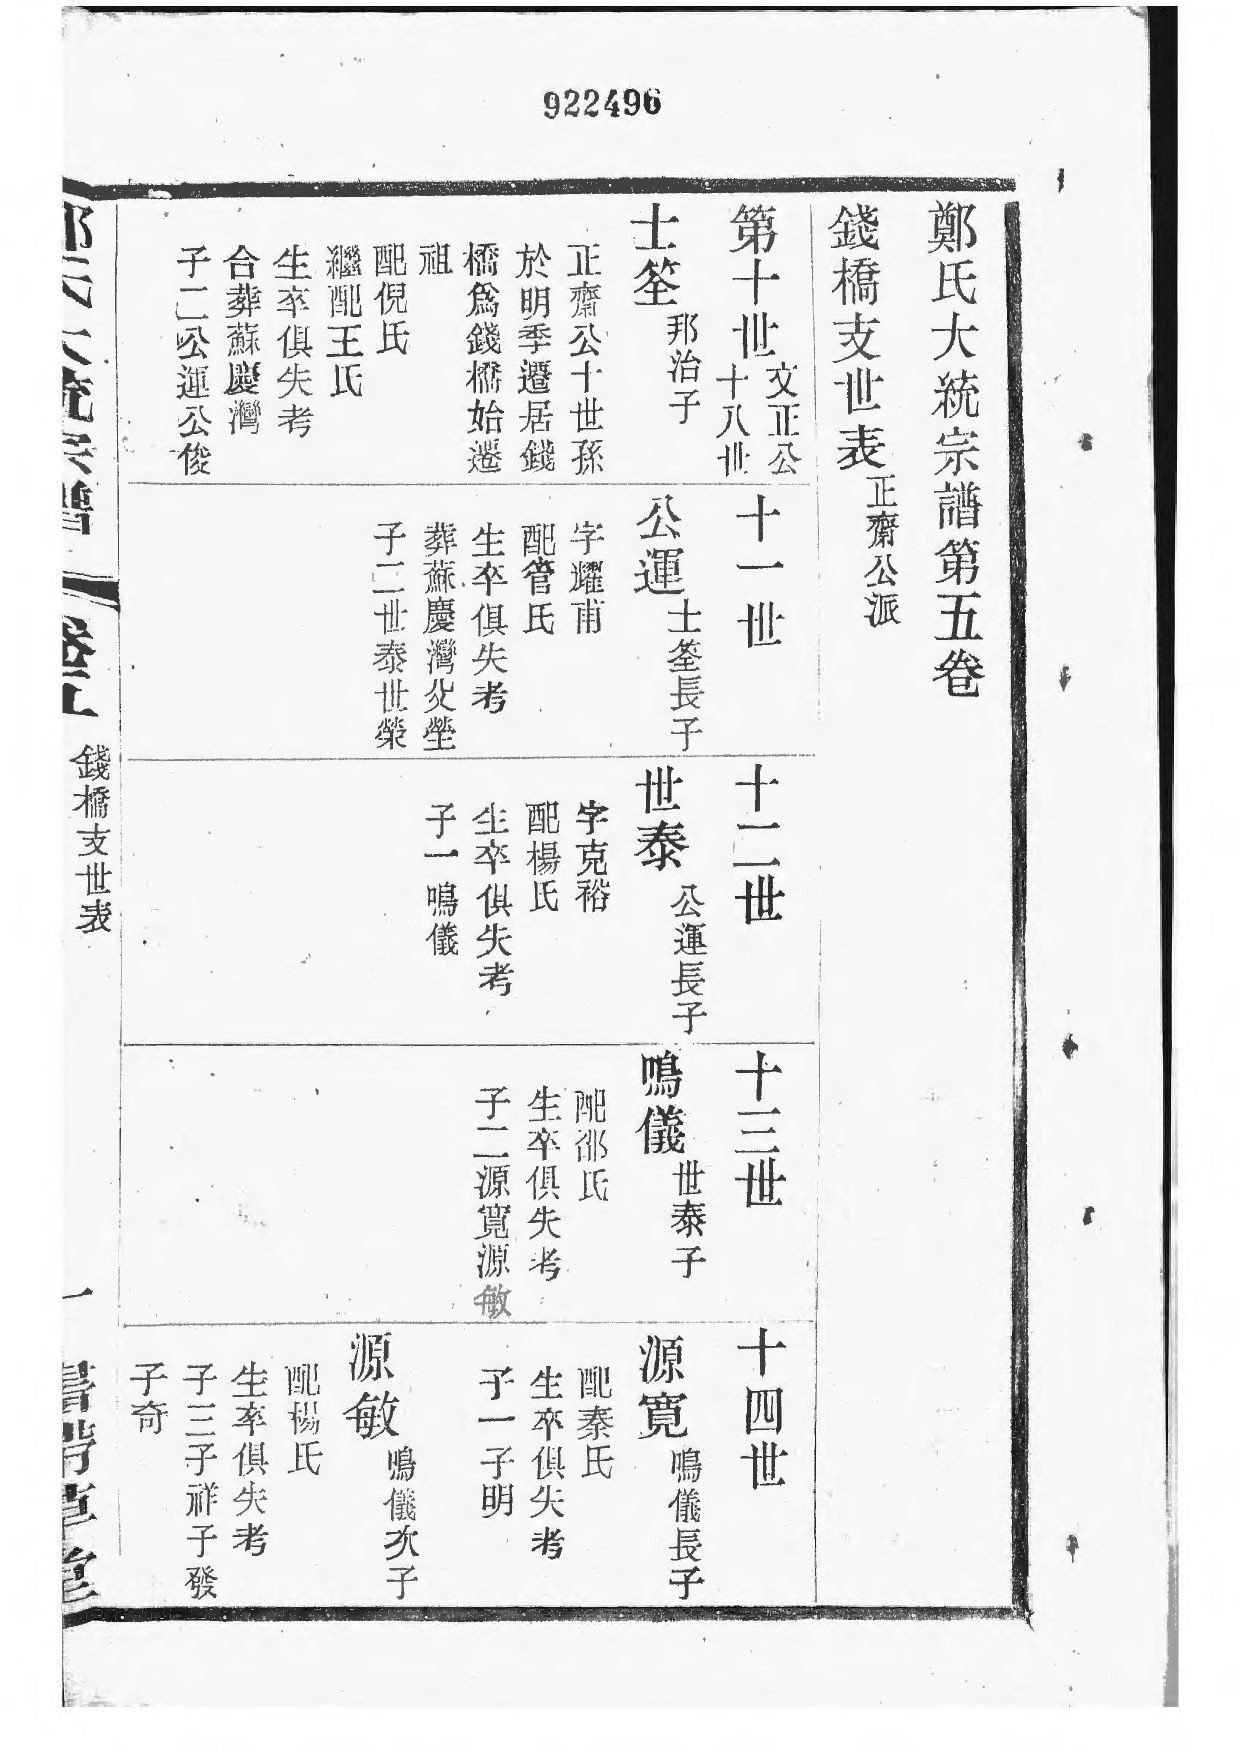 922496
鄭氏大統宗譜第五卷
錢橋支世表正齋公派
第十世文正公
十八世
士筌邦治子
正齋公十世孫
於明季遷居錢
橋爲錢橋始遷
祖
配倪氏
繼配王氏
生卒俱失考
合葬蘇慶灣
子二公運公俊
十一世
公運士筌長子
字耀甫
配管氏
生卒俱失考
葬蘇慶灣父塋
子二世泰世榮
十二世
世泰公運長子
字克裕
配楊氏
生卒俱失考
子一鳴儀
十三世
鳴儀世泰子
配邵氏
生卒俱失考
子二源寬源敏
十四世
源寬鳴儀長子
配秦氏
生卒俱失考
子一子明
源敏鳴儀次子
配楊氏
生卒俱失考
子三子祥子發
子奇
鄭氏大統宗譜
卷五
錢橋支世表
一
書帶草堂